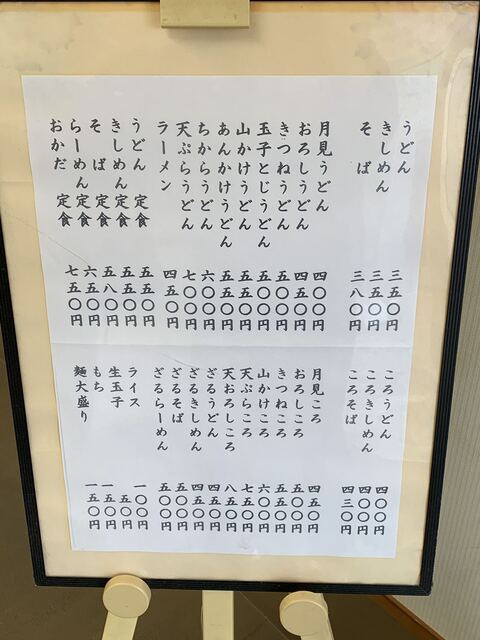 うどん 三五〇円
きしめん 三五〇円
そば 三八〇円
月見うどん 四〇〇円
おろしうどん 四五〇円
きつねうどん 五〇〇円
玉子とじうどん 五〇〇円
山かけうどん 五五〇円
あんかけうどん 五五〇円
ちからうどん 六〇〇円
天ぷらうどん 七〇〇円
ラーメン 四五〇円
うどん 定食 五五〇円
きしめん 定食 五五〇円
そば 定食 五八〇円
らーめん 定食 六五〇円
おかだ 定食 七五〇円
ころうどん 四〇〇円
ころきしめん 四〇〇円
ころそば 四三〇円
月見ころ 四五〇円
おろしころ 五〇〇円
きつねころ 五五〇円
山かけころ 六〇〇円
天ぷらころ 七五〇円
天おろしころ 八五〇円
ざるうどん 四五〇円
ざるきしめん 四五〇円
ざるそば 五〇〇円
ざるらーめん 五〇〇円
ライス 一〇〇円
生玉子 五〇円
もち 一五〇円
麺大盛り 一五〇円